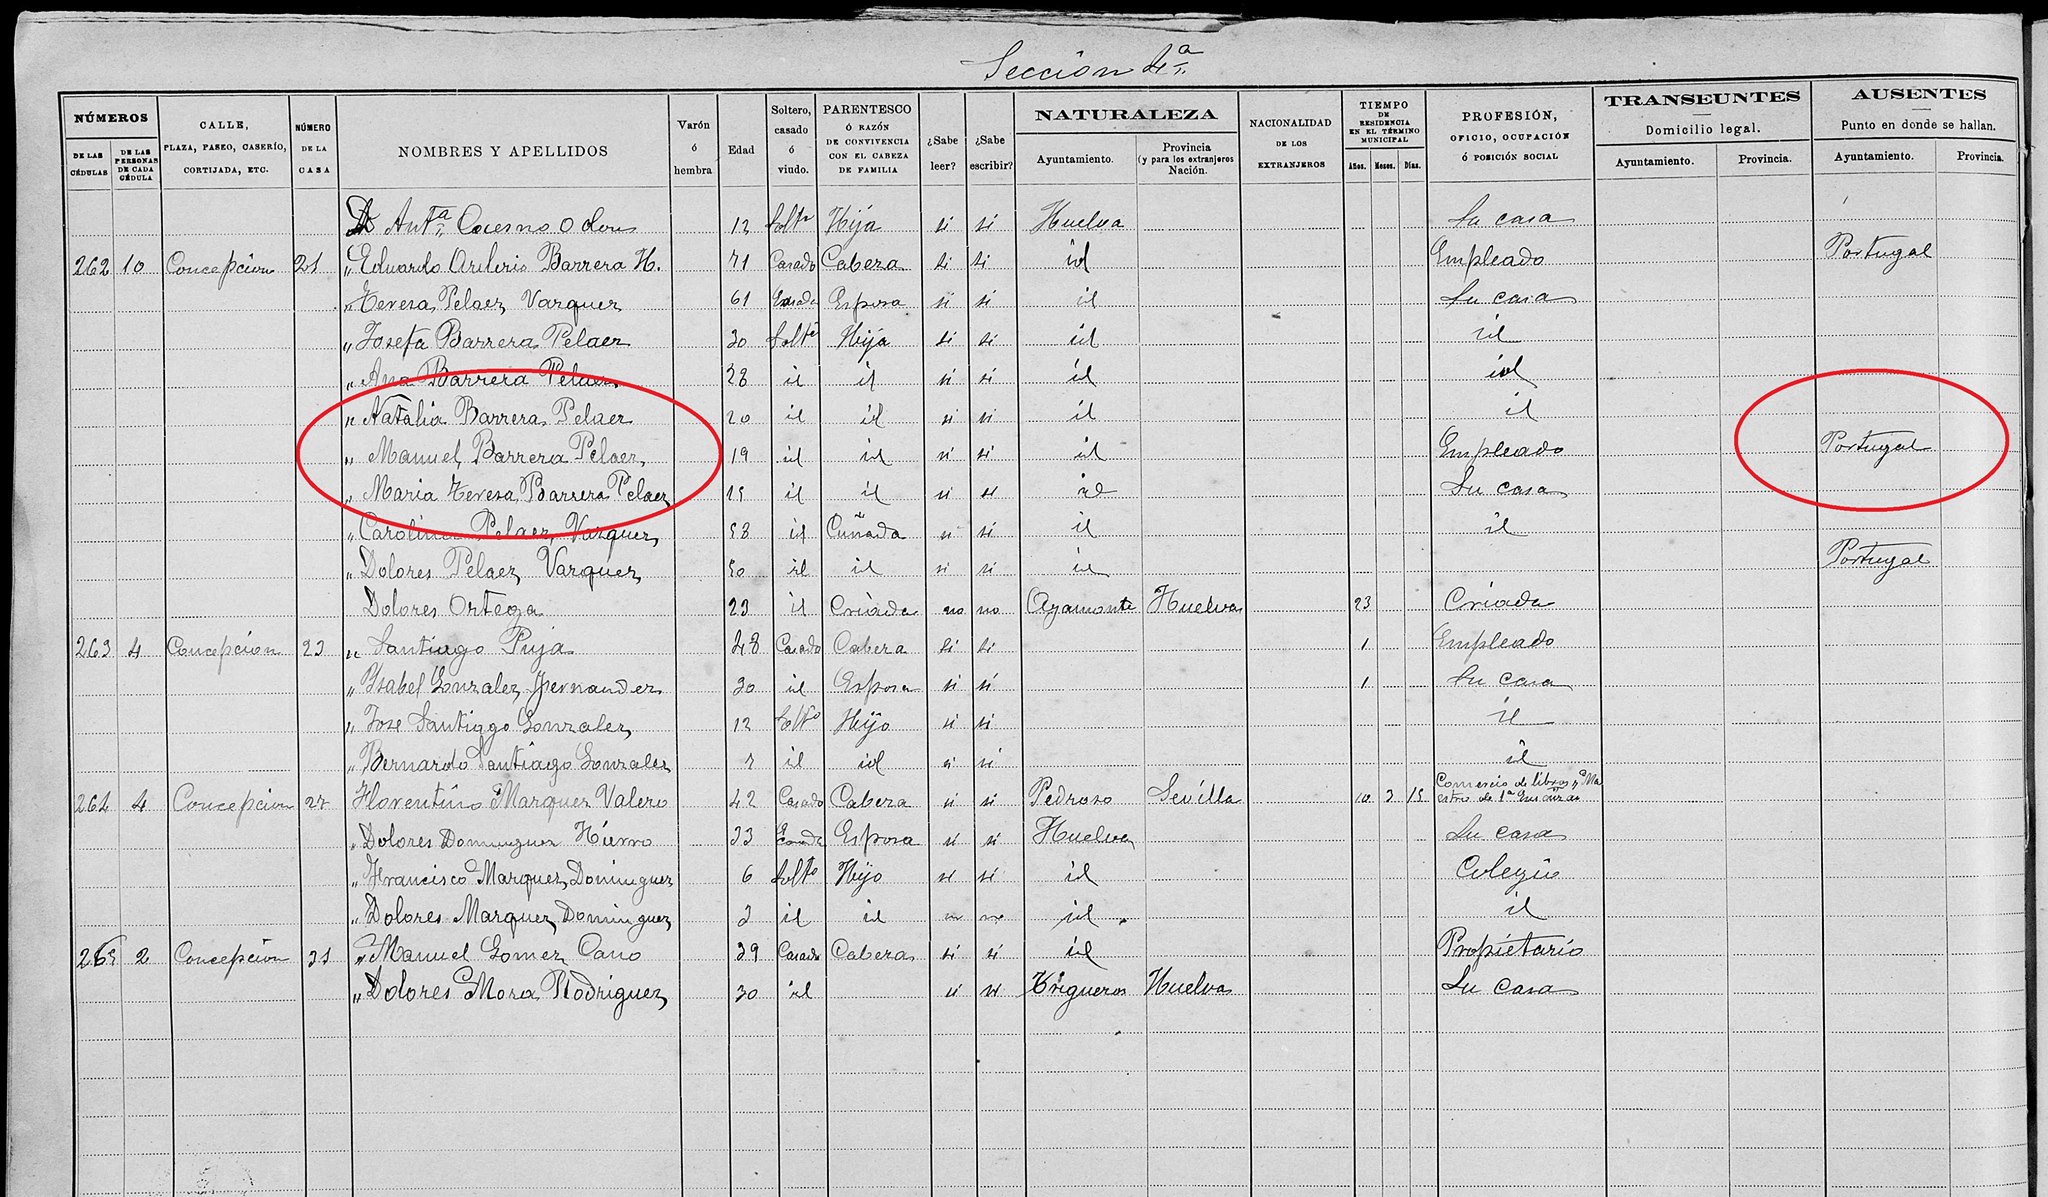 Sección 4ª
NÚMEROS
DE LAS CÉDULAS
DE LAS PERSONAS DE CADA CÉDULA
CALLE, PLAZA, PASEO, CASERÍO, CORTIJADA, ETC.
NÚMERO DE LA CASA
NOMBRES Y APELLIDOS
Varón ó hembra
Edad
Soltero, casado ó viudo.
PARENTESCO Ó RAZÓN DE CONVIVENCIA CON EL CABEZA DE FAMILIA
¿Sabe leer?
¿Sabe escribir?
NATURALEZA
Ayuntamiento.
Provincia (y para los extranjeros Nación.
NACIONALIDAD DE LOS EXTRANJEROS
TIEMPO DE RESIDENCIA EN EL TÉRMINO MUNICIPAL
Años. Meses. Días.
PROFESIÓN, OFICIO, OCUPACIÓN Ó POSICIÓN SOCIAL
TRANSEUNTES
Domicilio legal.
Ayuntamiento. Provincia.
AUSENTES
Punto en donde se hallan.
Ayuntamiento. Provincia.
Antª 12 Soltª Hija si si Huelva Su casa
262 10 Concepcion 21 " Eduardo Barrera H. 71 Casado Cabeza si si id Empleado Portugal
" Teresa Pelaez Vazquez 61 Casada Esposa si si id Su casa
" Josefa Barrera Pelaez 30 Soltª Hija si si id id
" Ana Barrera Pelaez 28 id id si si id id
" Natalia Barrera Pelaez 20 id id si si id id
" Manuel Barrera Pelaez 19 id id si si id Empleado Portugal
" Maria Teresa Barrera Pelaez 15 id id si si id Su casa
" Carolina Pelaez Vazquez 58 id Cuñada si si id id
" Dolores Pelaez Vazquez 50 id id si si id Portugal
Dolores Ortega 23 id Criada no no Ayamonte Huelva 23 Criada
263 4 Concepcion 23 " Santiago Puja 48 Casado Cabeza si si 1 Empleado
" Ysabel Gonzalez Hernandez 30 id Esposa si si 1 Su casa
" Jose Santiago Gonzalez 12 Soltº Hijo si si id
" Bernardo Santiago Gonzalez 7 id id si si id
264 4 Concepcion 27 Florentino Marquez Valero 42 Casado Cabeza si si Pedroso Sevilla 10 3 15 Comercio de libros y Ma
estro de 1ª
" Dolores Dominguez Hierro 33 Casada Esposa si si Huelva Su casa
" Francisco Marquez Dominguez 6 Soltº Hijo si si id Colegio
" Dolores Marquez Dominguez 3 id id no no id id
265 2 Concepcion 31 " Manuel Gomez Cano 39 Casado Cabeza si si id Propietario
" Dolores Mora Rodriguez 30 id si si Trigueros Huelva Su casa